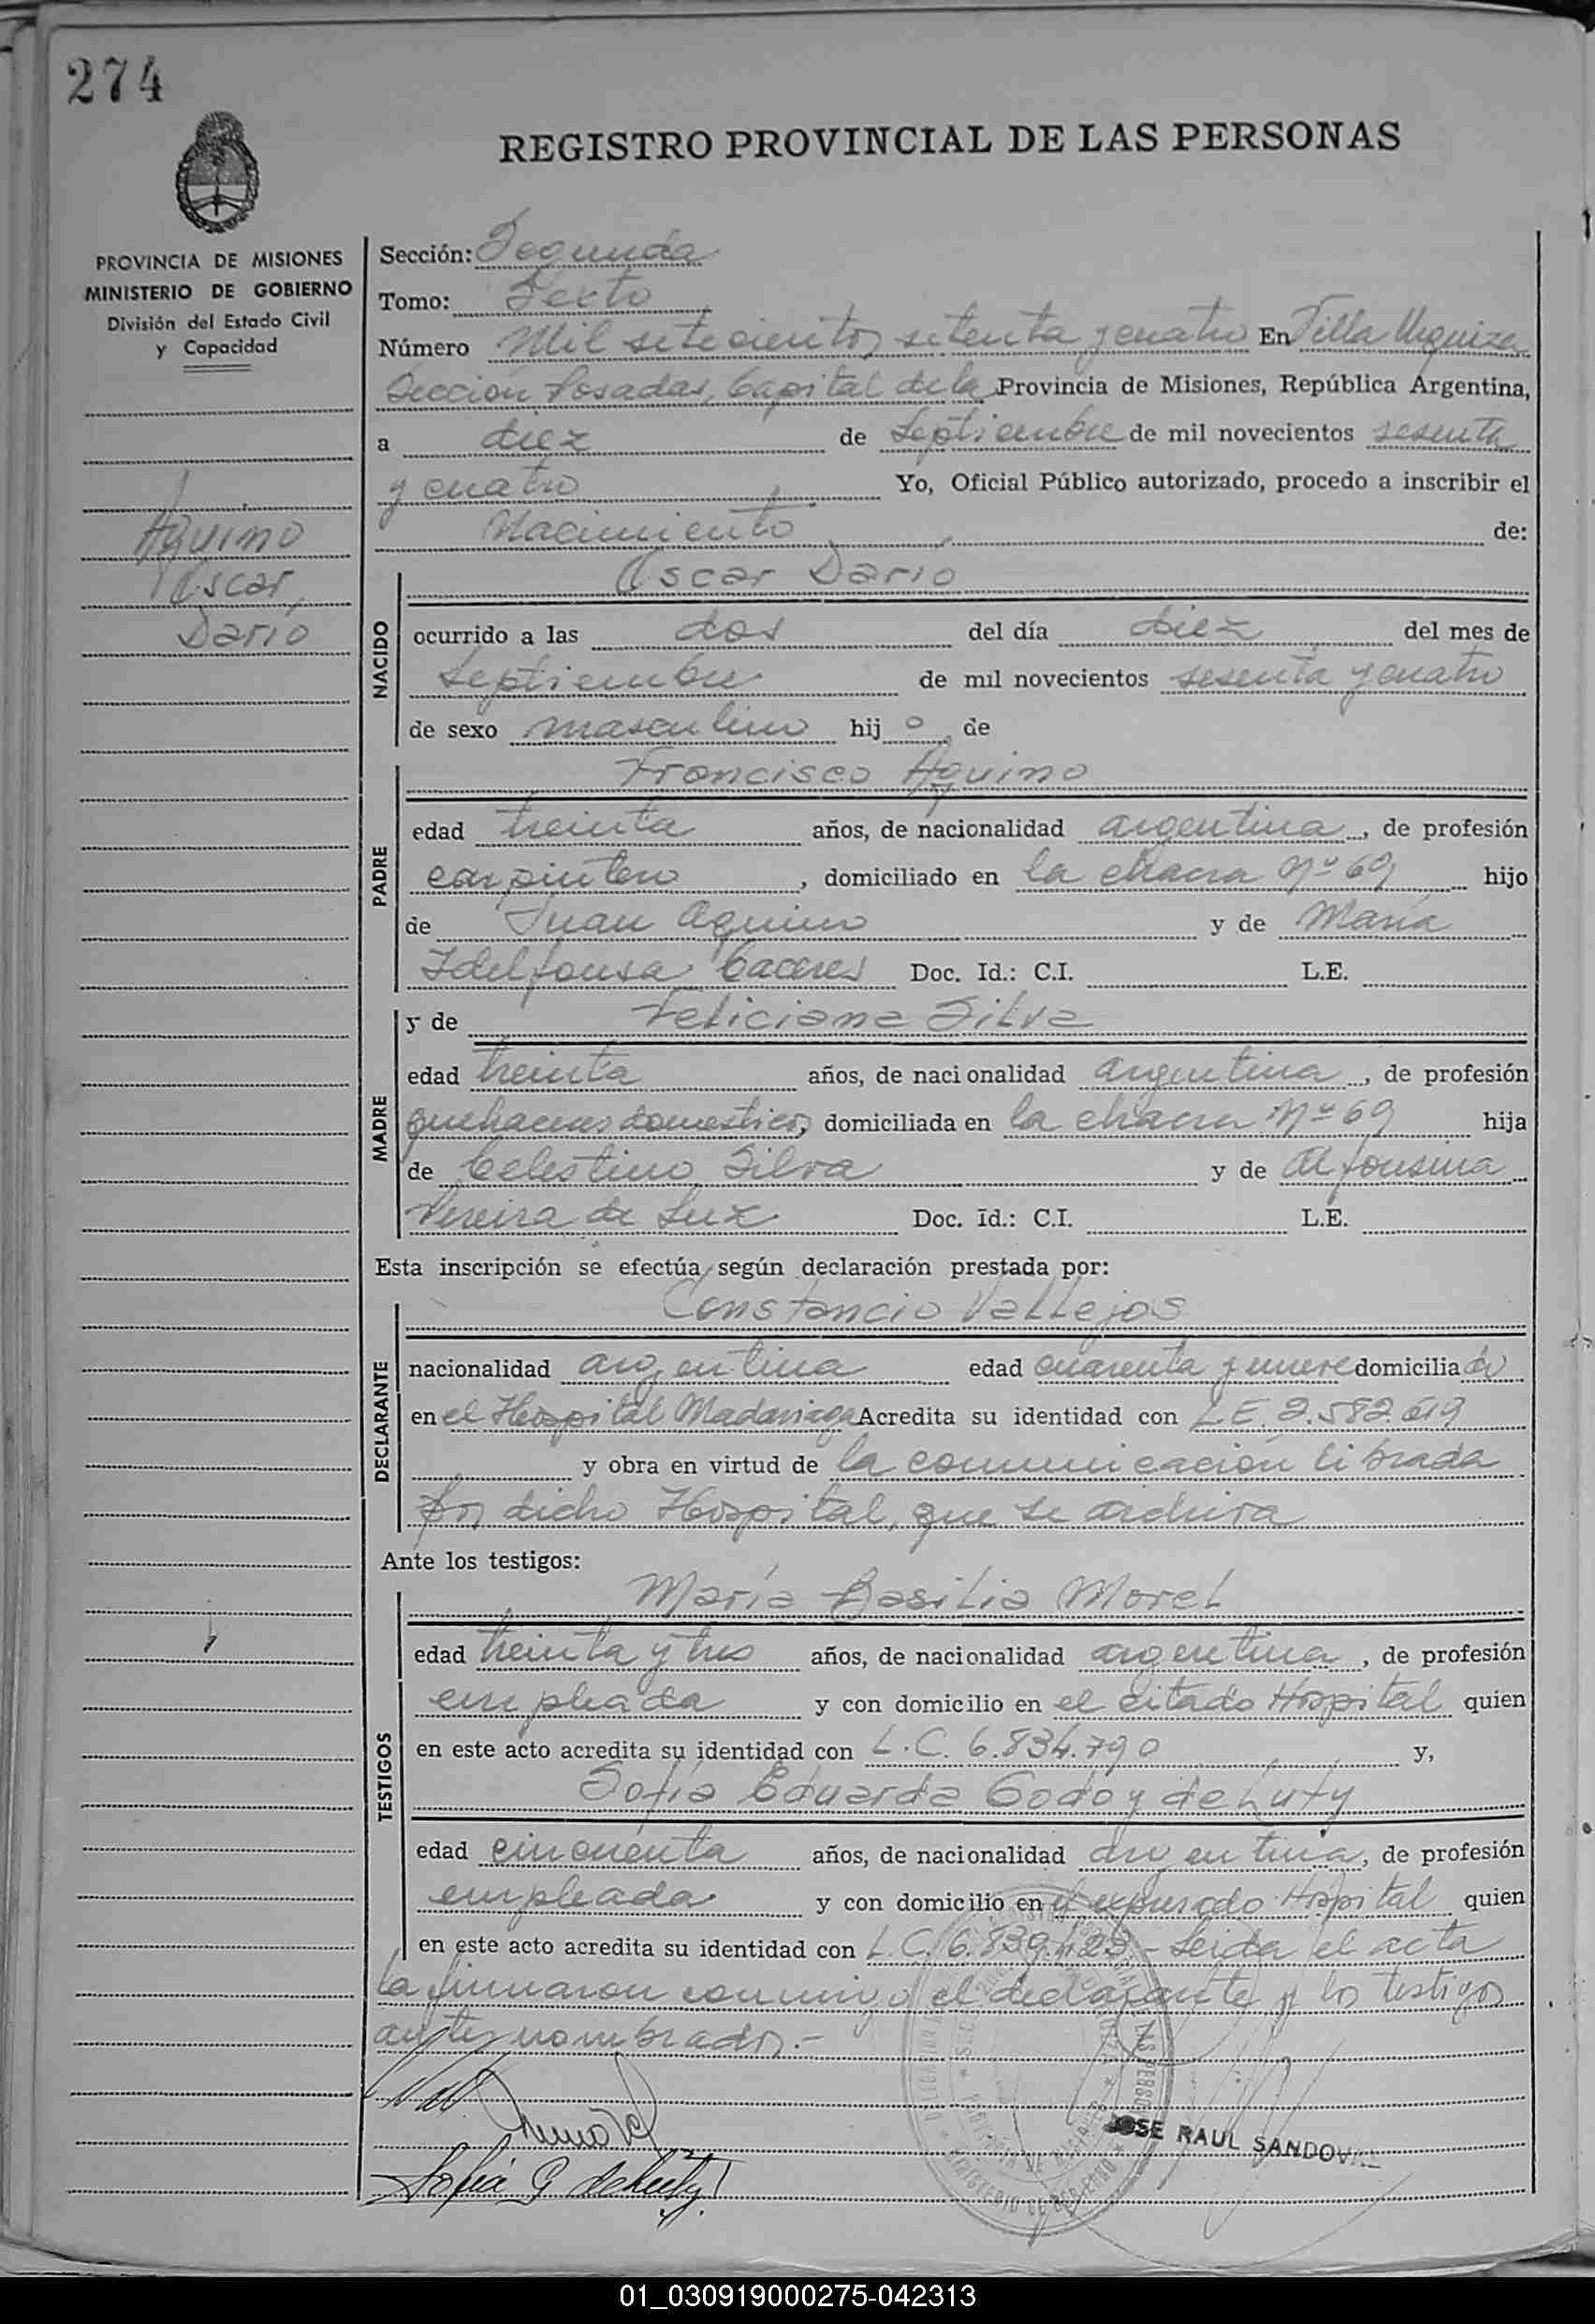 274
REGISTRO PROVINCIAL DE LAS PERSONAS
PROVINCIA DE MISIONES
MINISTERIO DE GOBIERNO
División del Estado Civil
y Capacidad
Aquino
Oscar
Darío
Sección: Segunda
Tomo: Sexto
Número Mil setecientos setenta y cuatro En Villa Urquiza
Sección Posadas, Capital de la Provincia de Misiones, República Argentina,
a diez de Septiembre de mil novecientos sesenta
y cuatro Yo, Oficial Público autorizado, procedo a inscribir el
Nacimiento de:
NACIDO
Oscar Darío
ocurrido a las dos del día diez del mes de
Septiembre de mil novecientos sesenta y cuatro
de sexo masculino hij o de
PADRE
Francisco Aquino
edad treinta años, de nacionalidad argentina, de profesión
carpintero, domiciliado en la chacra Nº 69 hijo
de Juan Aquino y de María
Idelfonsa Caceres Doc. Id.: C.I. L.E.
MADRE
y de Feliciana Silva
edad treinta años, de nacionalidad argentina, de profesión
quehaceres domesticos, domiciliada en la chacra Nº 69 hija
de Celestino Silva y de Alfonsina
Pereira de Luz Doc. Id.: C.I. L.E.
Esta inscripción se efectúa según declaración prestada por:
DECLARANTE
Constancio Vallejos
nacionalidad argentina edad cuarenta y nueve domiciliado
en el Hospital Madariaga Acredita su identidad con L.E. 2.582.619
y obra en virtud de la comunicación librada
por dicho Hospital, que se archiva
Ante los testigos:
TESTIGOS
María Basilia Morel
edad treinta y tres años, de nacionalidad argentina, de profesión
empleada y con domicilio en el citado Hospital quien
en este acto acredita su identidad con L.C. 6.834.790 y,
Sofía Eduarda Godoy de Luty
edad cincuenta años, de nacionalidad argentina, de profesión
empleada y con domicilio en el expresado Hospital quien
en este acto acredita su identidad con L.C. 6.839.123.- Leida el acta
la firmaron conmigo el declarante y los testigos
antes nombrados.-
JOSE RAUL SANDOVAL
Sofía G de Luty
01_030919000275-042313